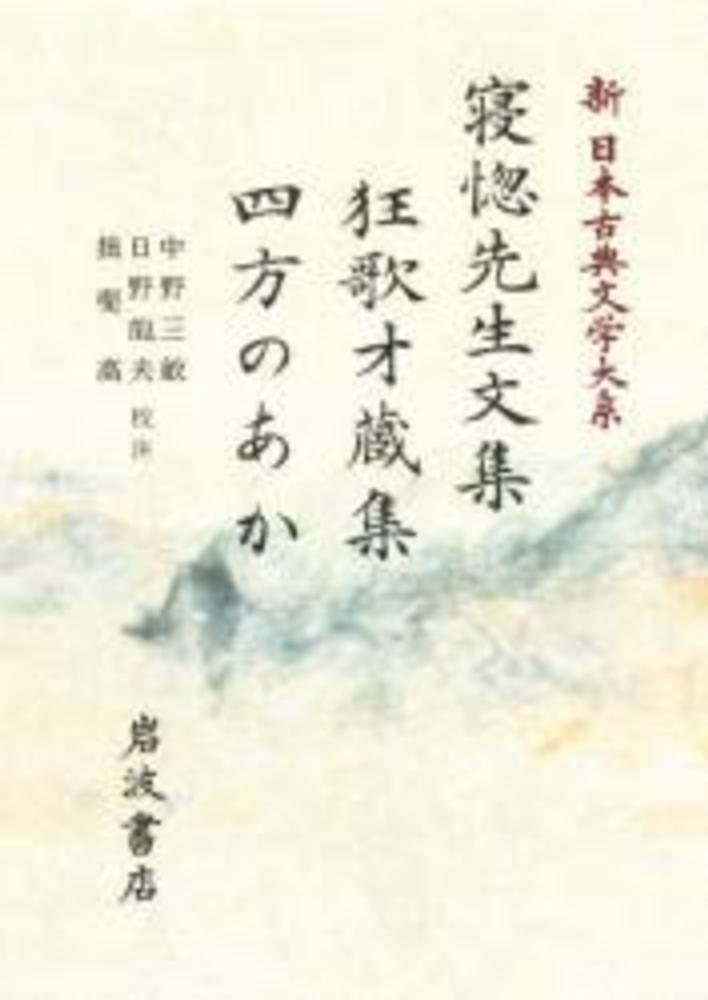 新 日本古典文学大系
寝惚先生文集
狂歌才蔵集
四方のあか
中野三敏
日野龍夫
揖斐高
校注
岩波書店